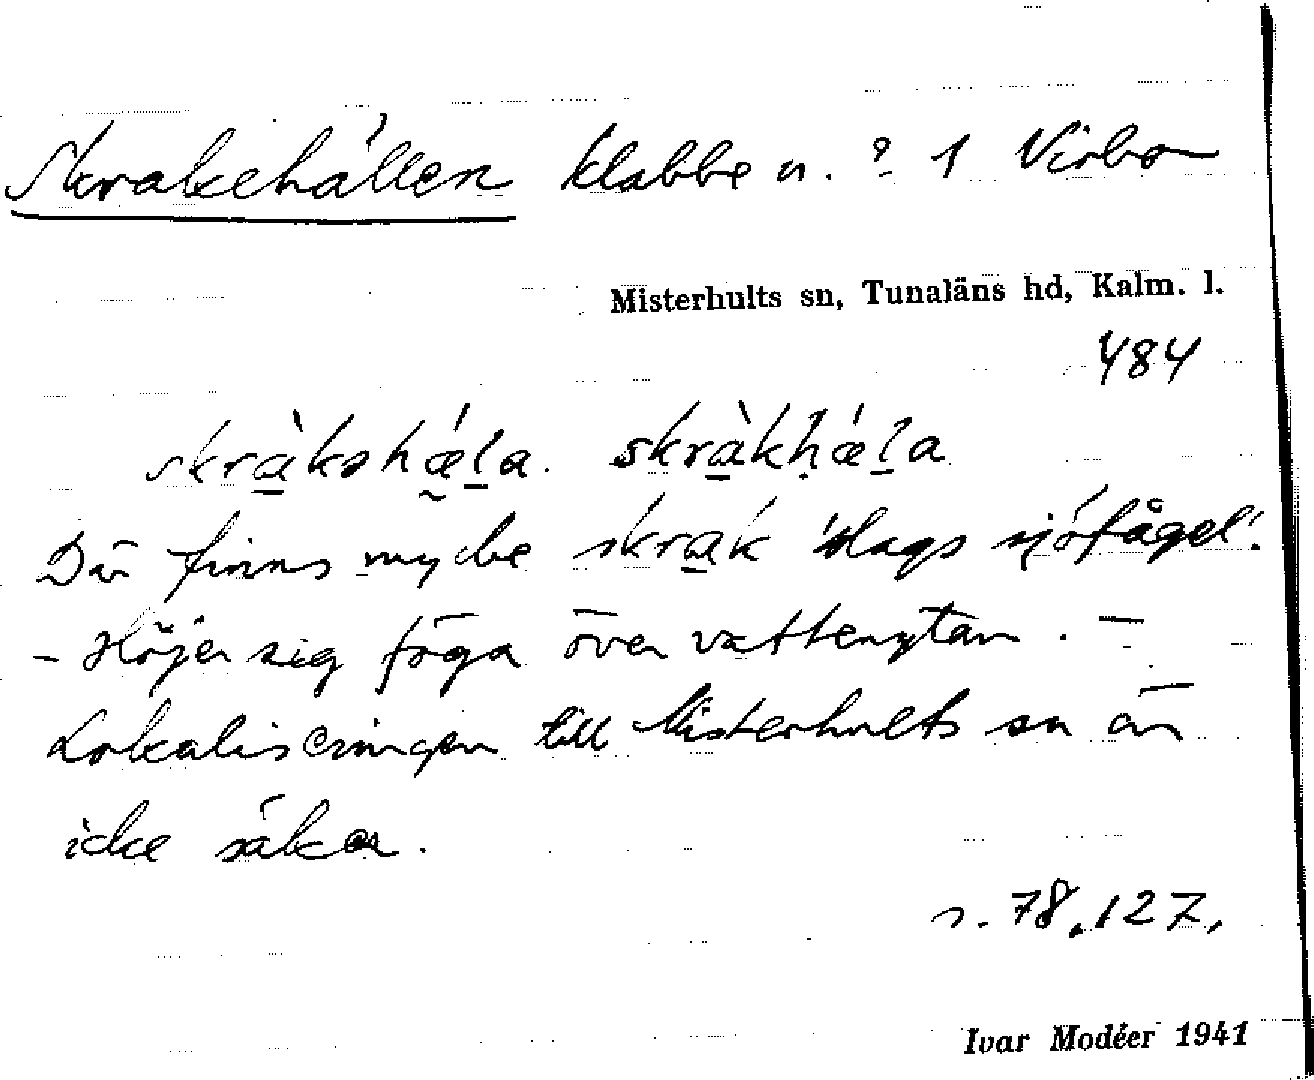 Skrakehällen klabbe n. ? 1 Virbo
Misterhults sn, Tunaläns hd, Kalm. l.
484
skràkəhæ´la. skràkhæ´la
Där finns mycke skrak 'slags sjöfågel'.
- Höjer sig föga över vattenytan. -
Lokaliseringen till Misterhults sn är
icke säker.
s. 78, 127,
Ivar Modéer 1941